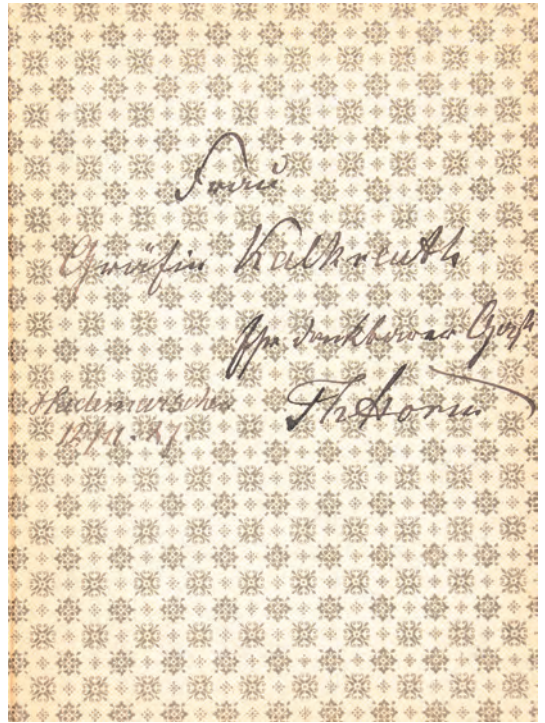 Frau
Gräfin Kalkreuth
Ihr dankbarer Gast
ThStorm
Hademarschen
12/11. 87.